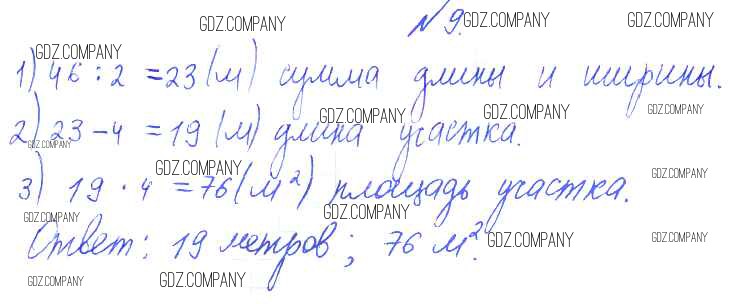 GDZ.COMPANY №9. GDZ.COMPANY GDZ.COMPANY
GDZ.COMPANY
1) 46 : 2 = 23 (м) сумма длины и ширины.
GDZ.COMPANY GDZ.COMPANY GDZ.COMPANY
2) 23 - 4 = 19 (м) длина участка.
GDZ.COMPANY GDZ.COMPANY GDZ.COMPANY
3) 19 · 4 = 76 (м²) площадь участка.
GDZ.COMPANY GDZ.COMPANY
Ответ: 19 метров; 76 м². GDZ.COMPANY GDZ.COMPANY
GDZ.COMPANY GDZ.COMPANY